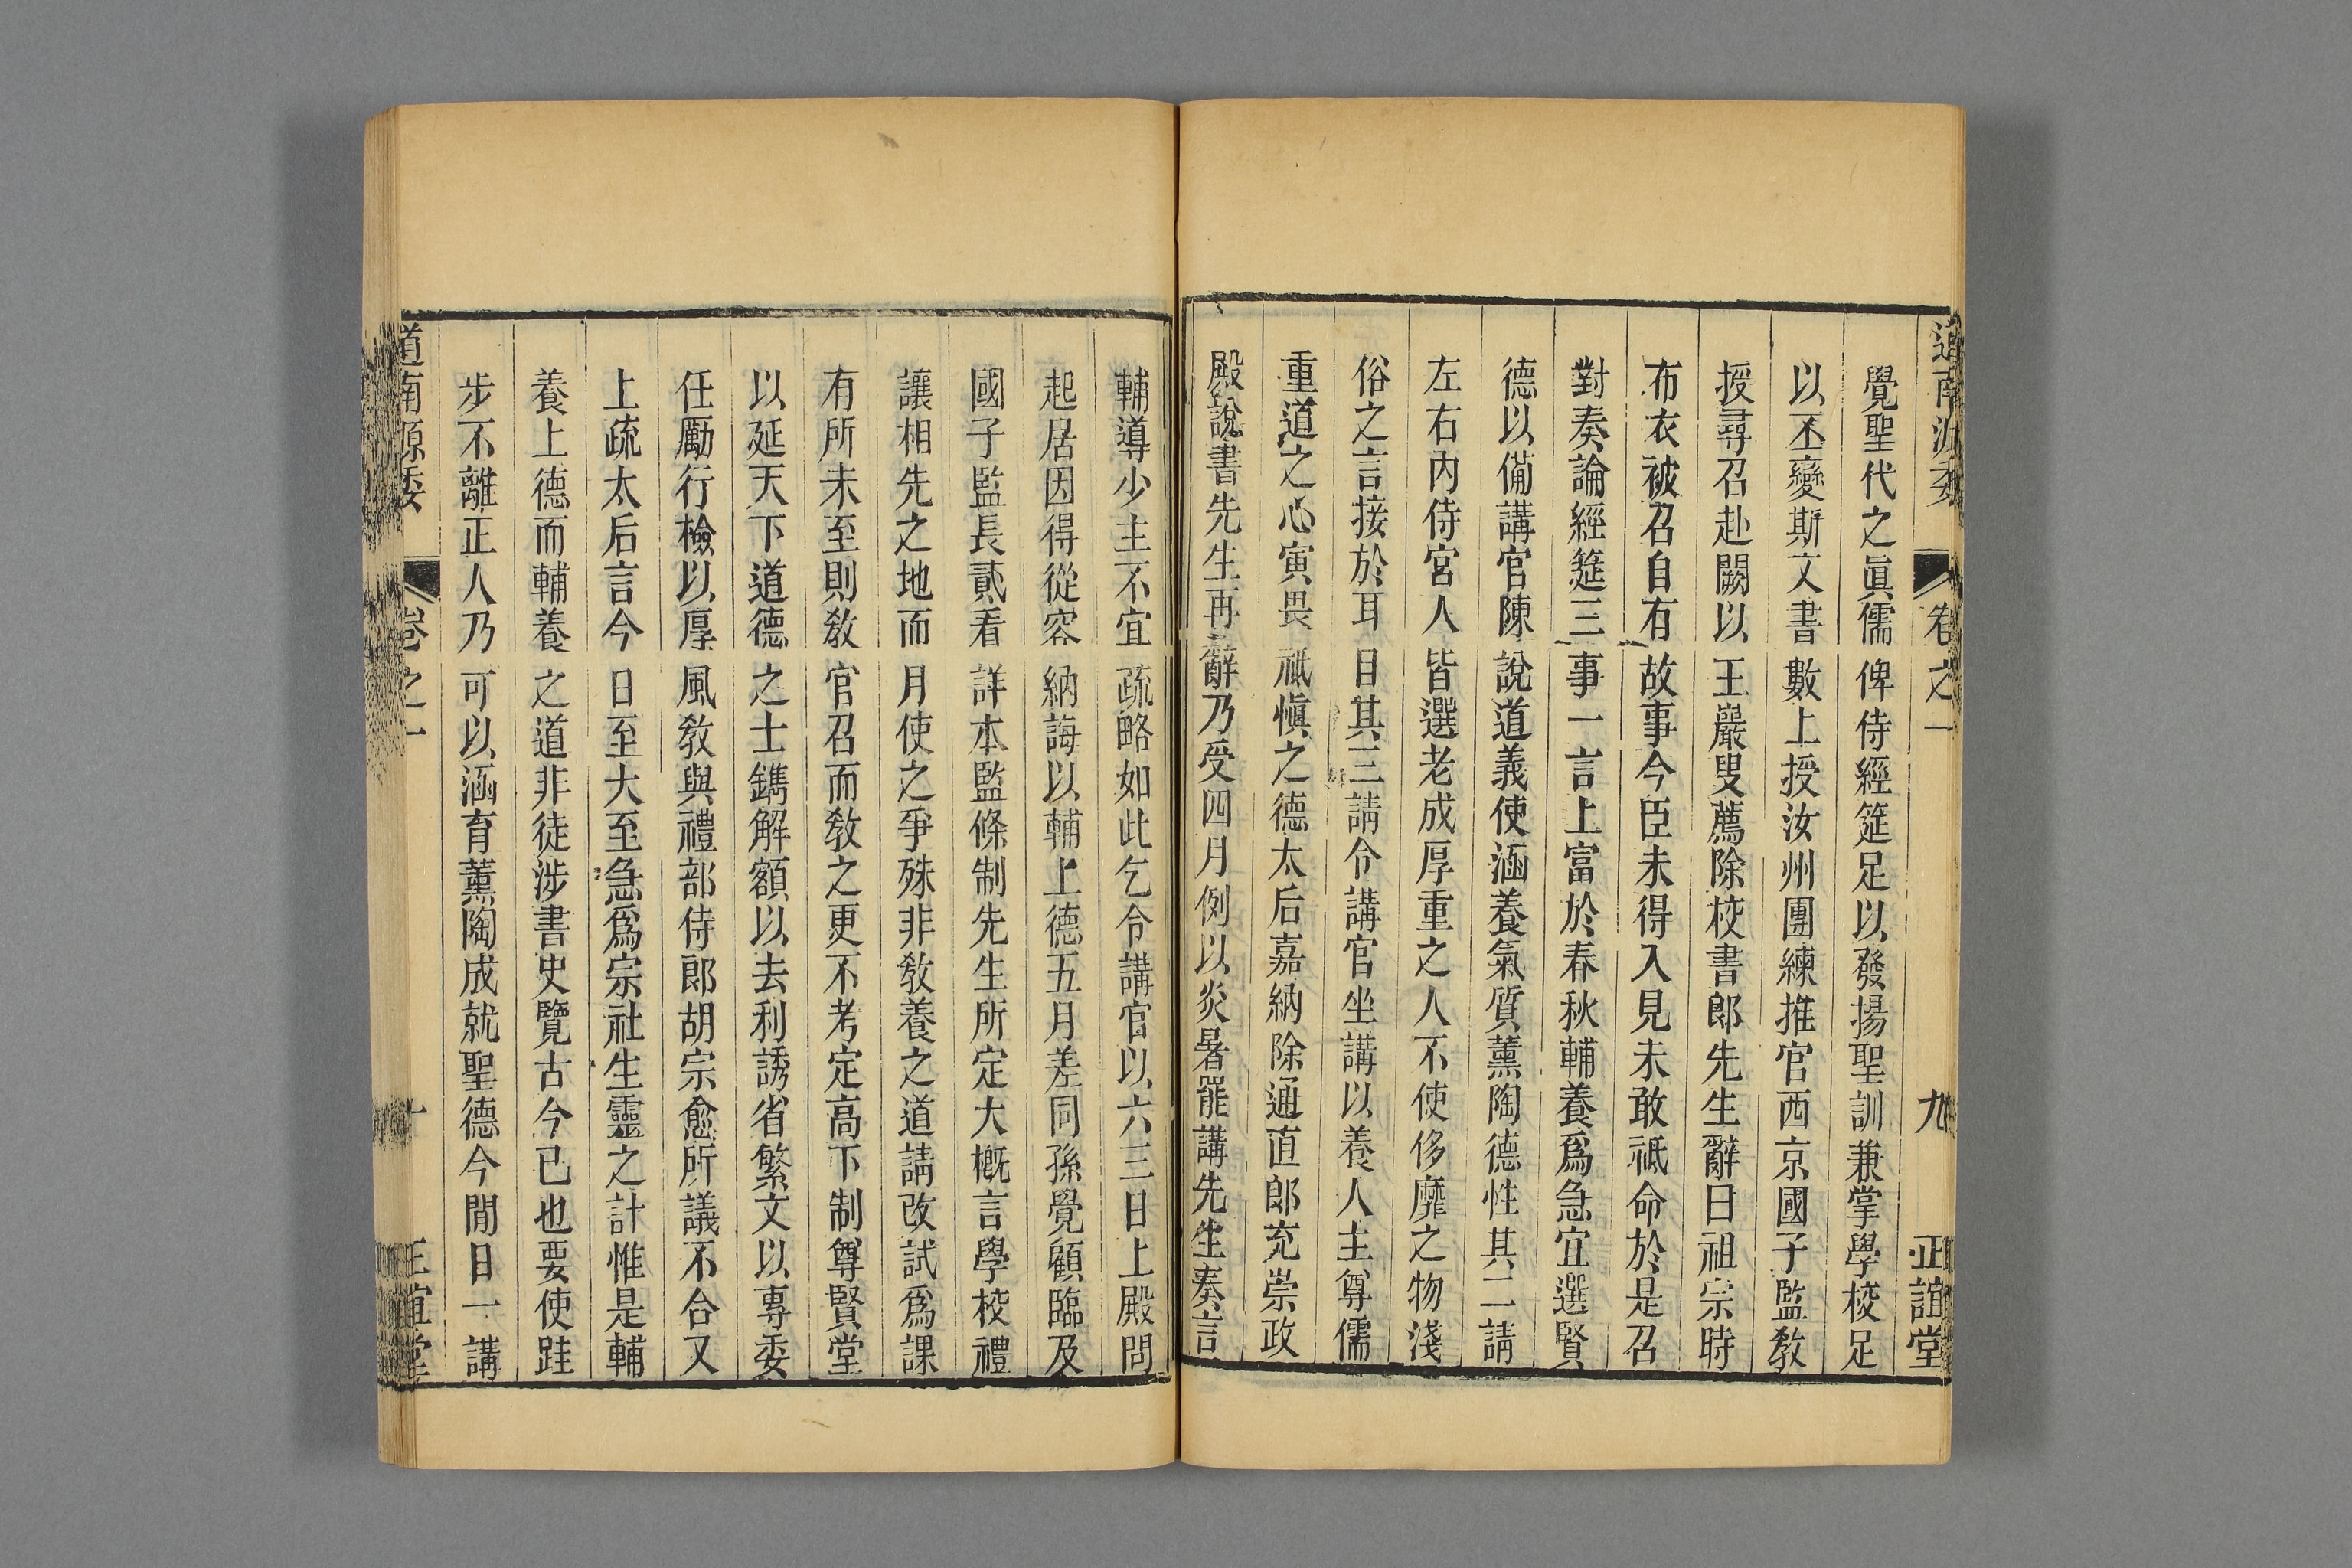 道南源委 卷之一 九 正誼堂
覺聖代之眞儒俾侍經筵足以發揚聖訓兼掌學校足
以丕變斯文書數上授汝州團練推官西京國子監敎
授尋召赴闕以王巖叟薦除校書郎先生辭曰祖宗時
布衣被召自有故事今臣未得入見未敢祗命於是召
對奏論經筵三事一言上富於春秋輔養爲急宜選賢
德以僃講官陳說道義使涵養氣質薰陶德性其二請
左右內侍宮人皆選老成厚重之人不使侈靡之物淺
俗之言接於耳目其三請令講官坐講以養人主尊儒
重道之心寅畏祗愼之德太后嘉納除通直郎充崇政
殿說書先生再辭乃受四月例以炎暑罷講先生奏言
輔導少主不宜疏略如此乞令講官以六三日上殿問
起居因得從容納誨以輔上德五月差同孫覺顧臨及
國子監長貳看詳本監條制先生所定大槪言學校禮
讓相先之地而月使之爭殊非敎養之道請改試爲課
有所未至則敎官召而敎之更不考定高下制尊賢堂
以延天下道德之士鐫解額以去利誘省繁文以專委
任勵行檢以厚風敎與禮部侍郎胡宗愈所議不合又
上疏太后言今日至大至急爲宗社生靈之計惟是輔
養上德而輔養之道非徒涉書史覽古今已也要使跬
步不離正人乃可以涵育薰陶成就聖德今閒日一講
道南源委 卷之一 十 正誼堂